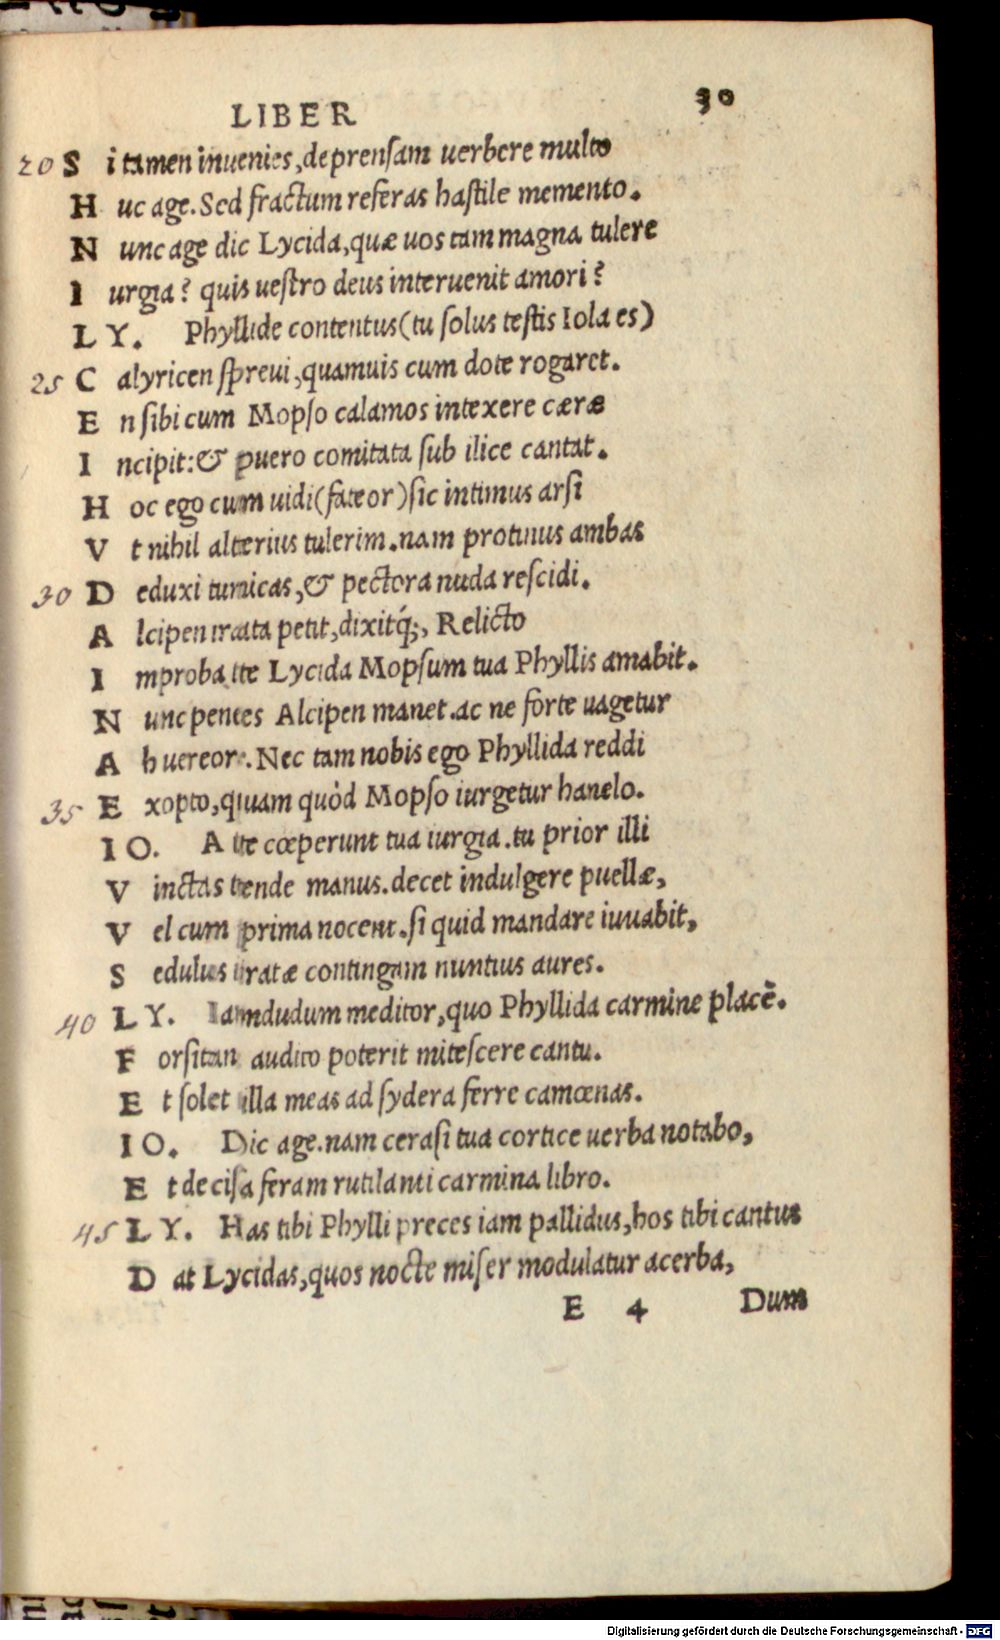 LIBER 30
20 S i tamen inuenies, deprensam uerbere multo
H uc age. Sed fractum referas hastile memento.
N unc age dic Lycida, quæ uos tam magna tulere
I urgia? quis uestro deus interuenit amori?
L Y. Phyllide contentus (tu solus testis Iola es)
25 C alyricen spreui, quamuis cum dote rogaret.
E n sibi cum Mopso calamos intexere cæræ
I ncipit: & puero comitata sub ilice cantat.
H oc ego cum uidi (fateor) sic intimus arsi
V t nihil alterius tulerim. nam protinus ambas
30 D eduxi tunicas, & pectora nuda rescidi.
A lcipen irata petit, dixitq́;, Relicto
I mproba te Lycida Mopsum tua Phyllis amabit.
N unc penes Alcipen manet. ac ne forte uagetur
A h uereor. Nec tam nobis ego Phyllida reddi
35 E xopto, quam quòd Mopso iurgetur hanelo.
I O. A te cœperunt tua iurgia. tu prior illi
V inctas tende manus. decet indulgere puellæ,
V el cum prima nocent. si quid mandare iuuabit,
S edulus iratæ contingam nuntius aures.
40 L Y. Iamdudum meditor, quo Phyllida carmine placē.
F orsitan audito poterit mitescere cantu.
E t solet illa meas ad sydera ferre camœnas.
I O. Dic age. nam cerasi tua cortice uerba notabo,
E t decisa feram rutilanti carmina libro.
45 L Y. Has tibi Phylli preces iam pallidus, hos tibi cantus
D at Lycidas, quos nocte miser modulatur acerba,
E 4 Dum
Digitalisierung gefördert durch die Deutsche Forschungsgemeinschaft - DFG